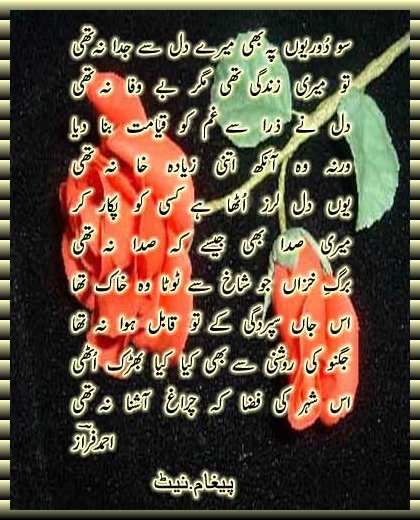 سو دُوریوں پہ بھی میرے دل سے جدا نہ تھی
تو میری زندگی تھی مگر بے وفا نہ تھی
دل نے ذرا سے غم کو قیامت بنا دیا
ورنہ وہ آنکھ اتنی زیادہ خفا نہ تھی
یوں دل لرز اُٹھا ہے کسی کو پکار کر
میری صدا بھی جیسے کہ صدا نہ تھی
برگِ خزاں جو شاخ سے ٹوٹا وہ خاک تھا
اس جاں سپردگی کے تو قابل ہوا نہ تھا
جگنو کی روشنی سے بھی کیا کیا بھڑک اٹھی
اس شہر کی فضا کہ چراغ آشنا نہ تھی
احمد فراز
پیغام.نیٹ